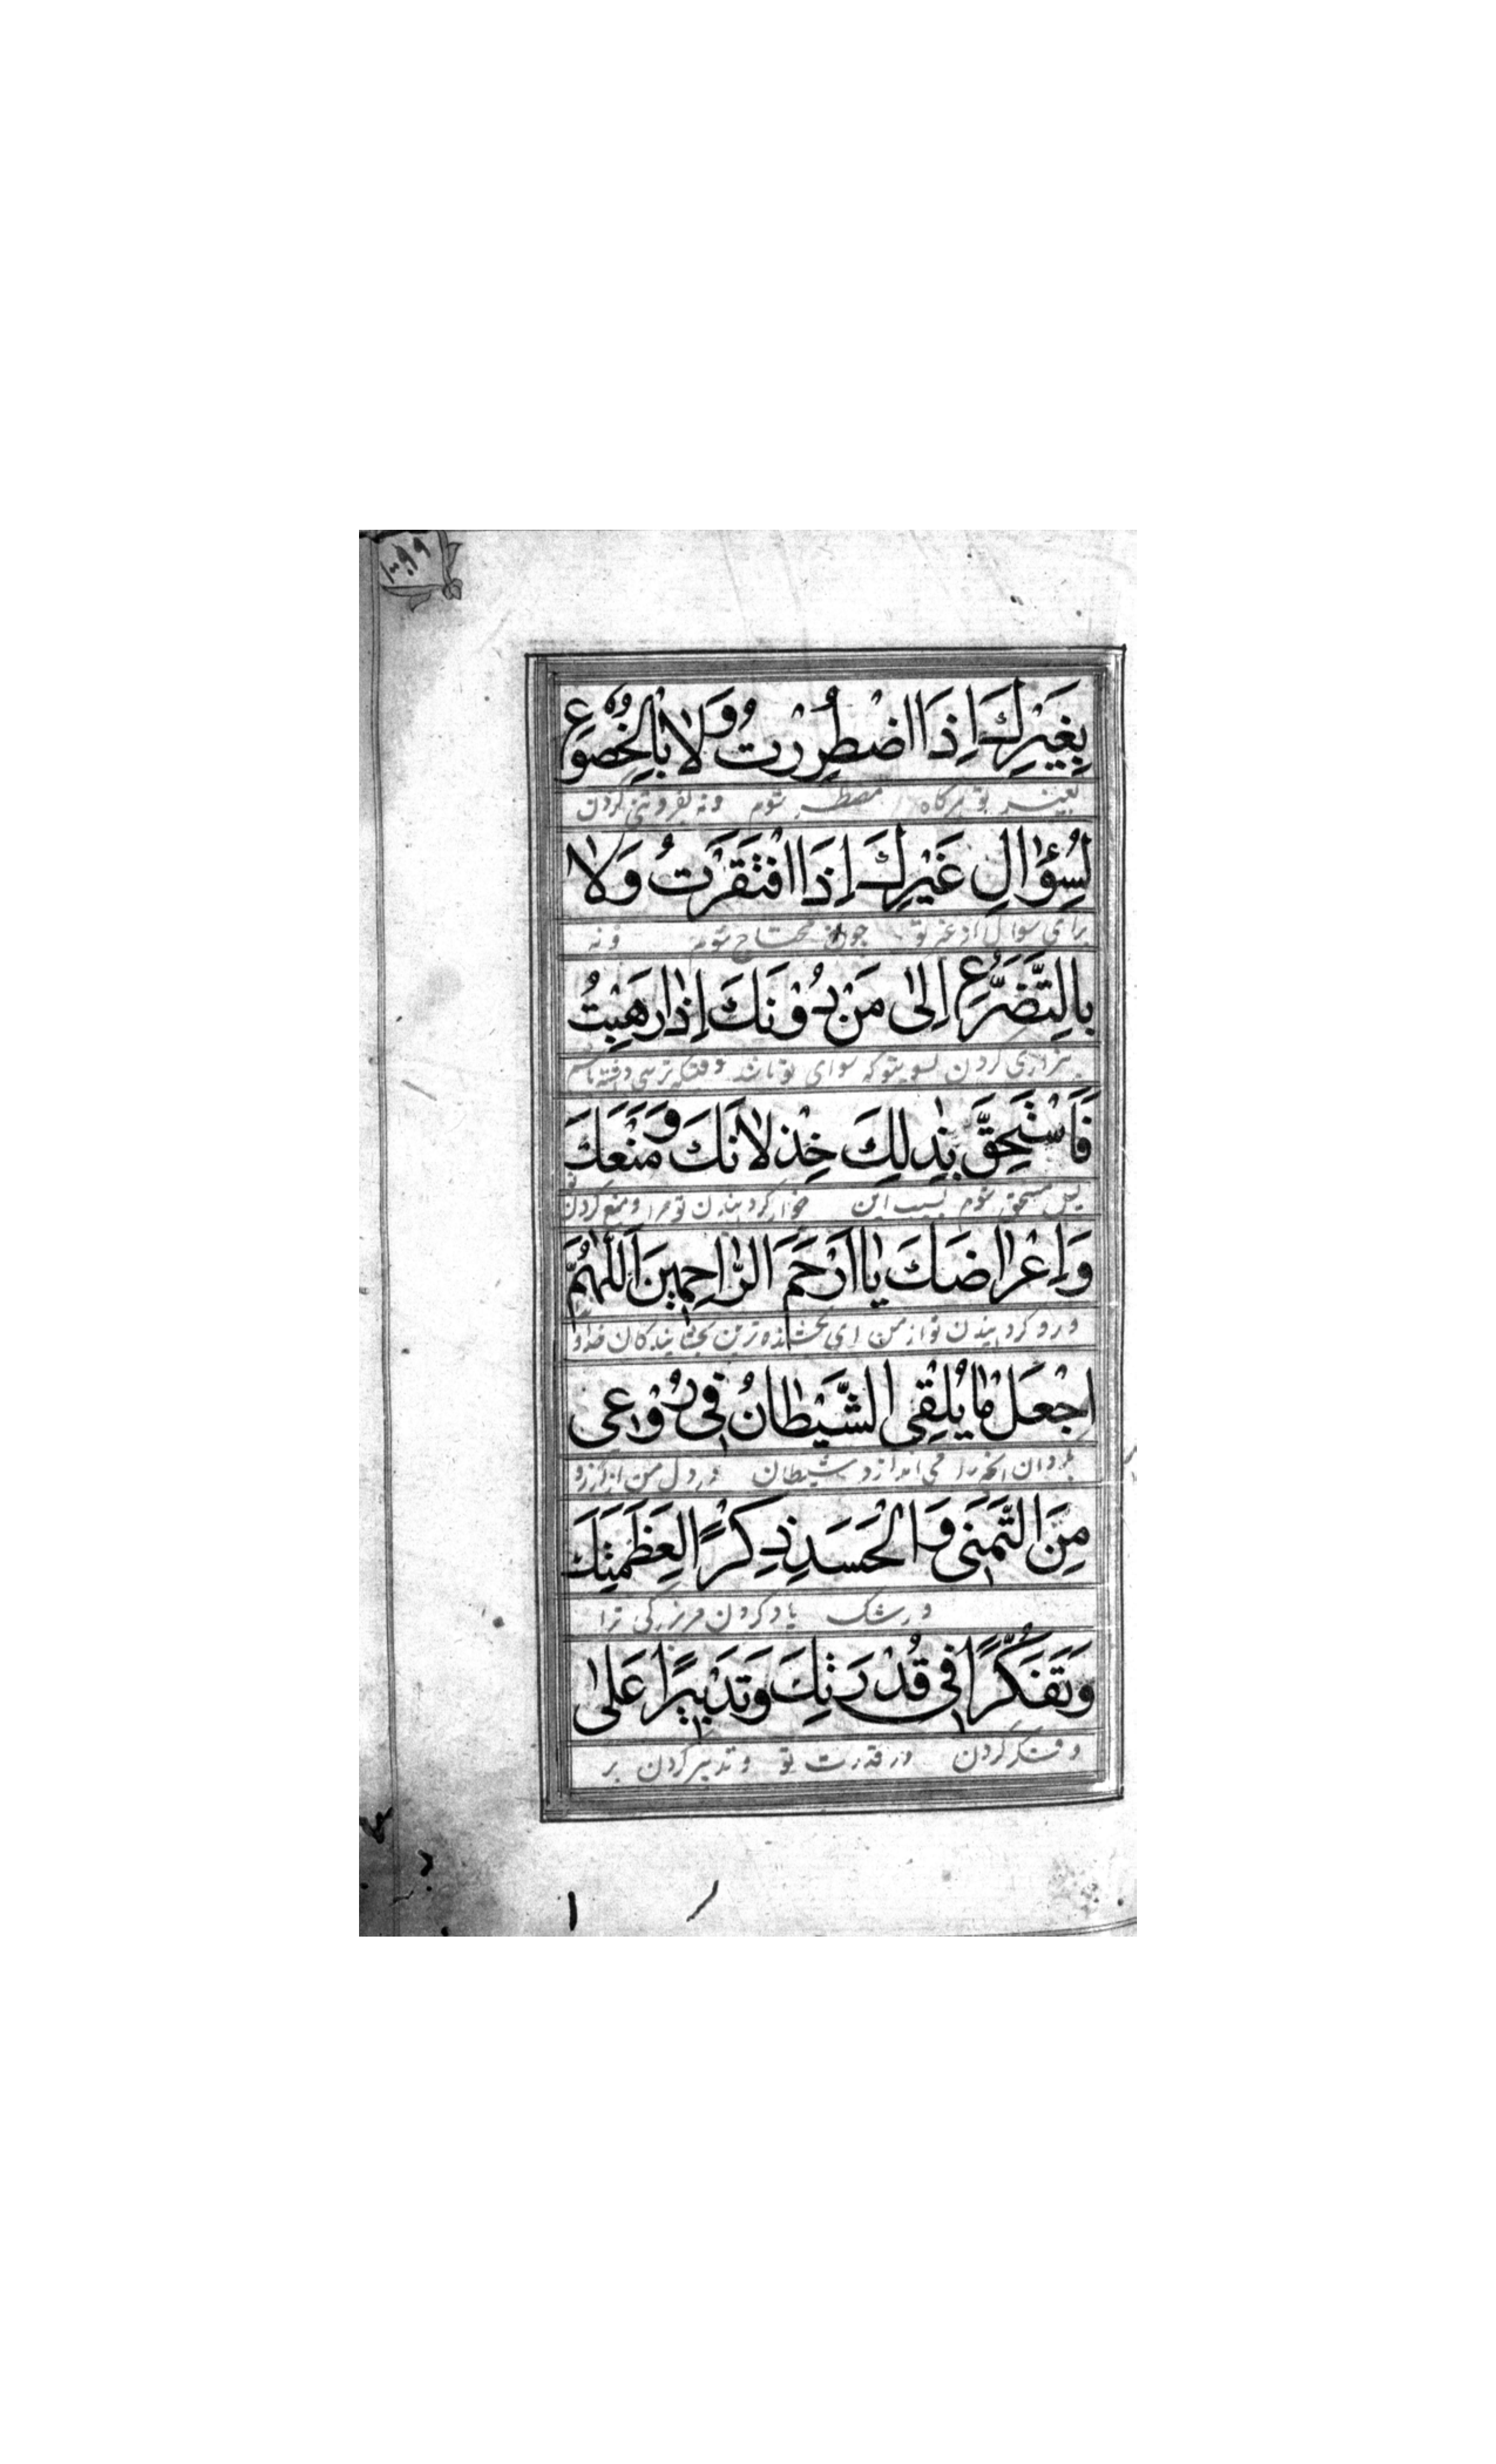 بِغَيْرِكَ اِذَا اضْطُرِرْتُ وَلَا بِالْخُضُوْعِ
بغیر تو هرگاه مضطر شوم و نه بفروتنی کردن
لِسُؤَالِ غَيْرِكَ اِذَا افْتَقَرْتُ وَلَا
برای سوال از غیر تو چون محتاج شوم و نه
بِالتَّضَرُّعِ اِلٰى مَنْ دُوْنَكَ اِذَا رَهِبْتُ
بزاری کردن بسوی که سوای تو باشد وقتیکه ترسی داشته باشم
فَاَسْتَحِقَّ بِذٰلِكَ خِذْلَانَكَ وَمَنْعَكَ
پس مستحق شوم بسبب این خوار گردانیدن تو مرا و منع کردن تو
وَاِعْرَاضَكَ يَا اَرْحَمَ الرَّاحِمِيْنَ اَللّٰهُمَّ
و رو گردانیدن تو از من ای بخشنده ترین بخشایندگان خداوندا
اجْعَلْ مَا يُلْقِى الشَّيْطَانُ فِىْ رُوْعِىْ
بگردان آنچه را می اندازد شیطان در دل من از آرزو
مِنَ التَّمَنِّىْ وَالْحَسَدِ ذِكْرًا لِعَظَمَتِكَ
و رشک یاد کردن مر بزرگی ترا
وَتَفَكُّرًا فِىْ قُدْرَتِكَ وَتَدْبِيْرًا عَلٰى
و فکر کردن در قدرت تو و تدبیر کردن بر